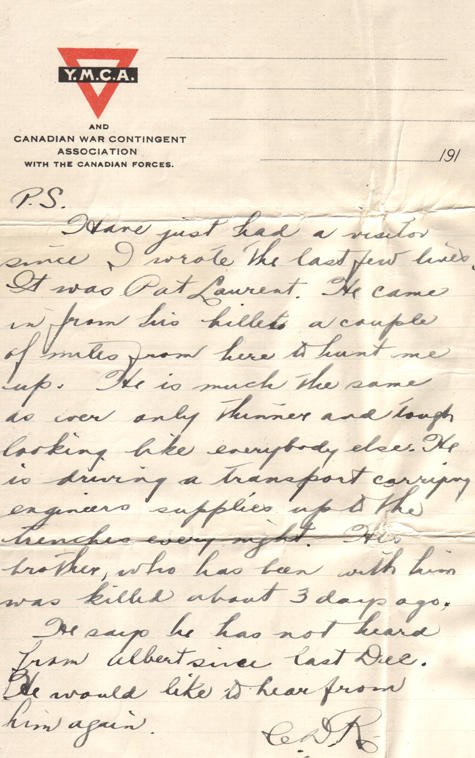 Y.M.C.A.
AND
CANADIAN WAR CONTINGENT
ASSOCIATION
WITH THE CANADIAN FORCES.
191
P.S.
Have just had a visitor
since I wrote the last few lines.
It was Pat Laurent. He came
in from his billets a couple
of miles from here to hunt me
up. He is much the same
as ever only thinner and tough
looking like everybody else. He
is driving a transport carrying
engineers supplies up to the
trenches every night. His
brother, who has been with him
was killed about 3 days ago.
He says he has not heard
from Albert since last Dec.
He would like to hear from
him again.
C.D.R.